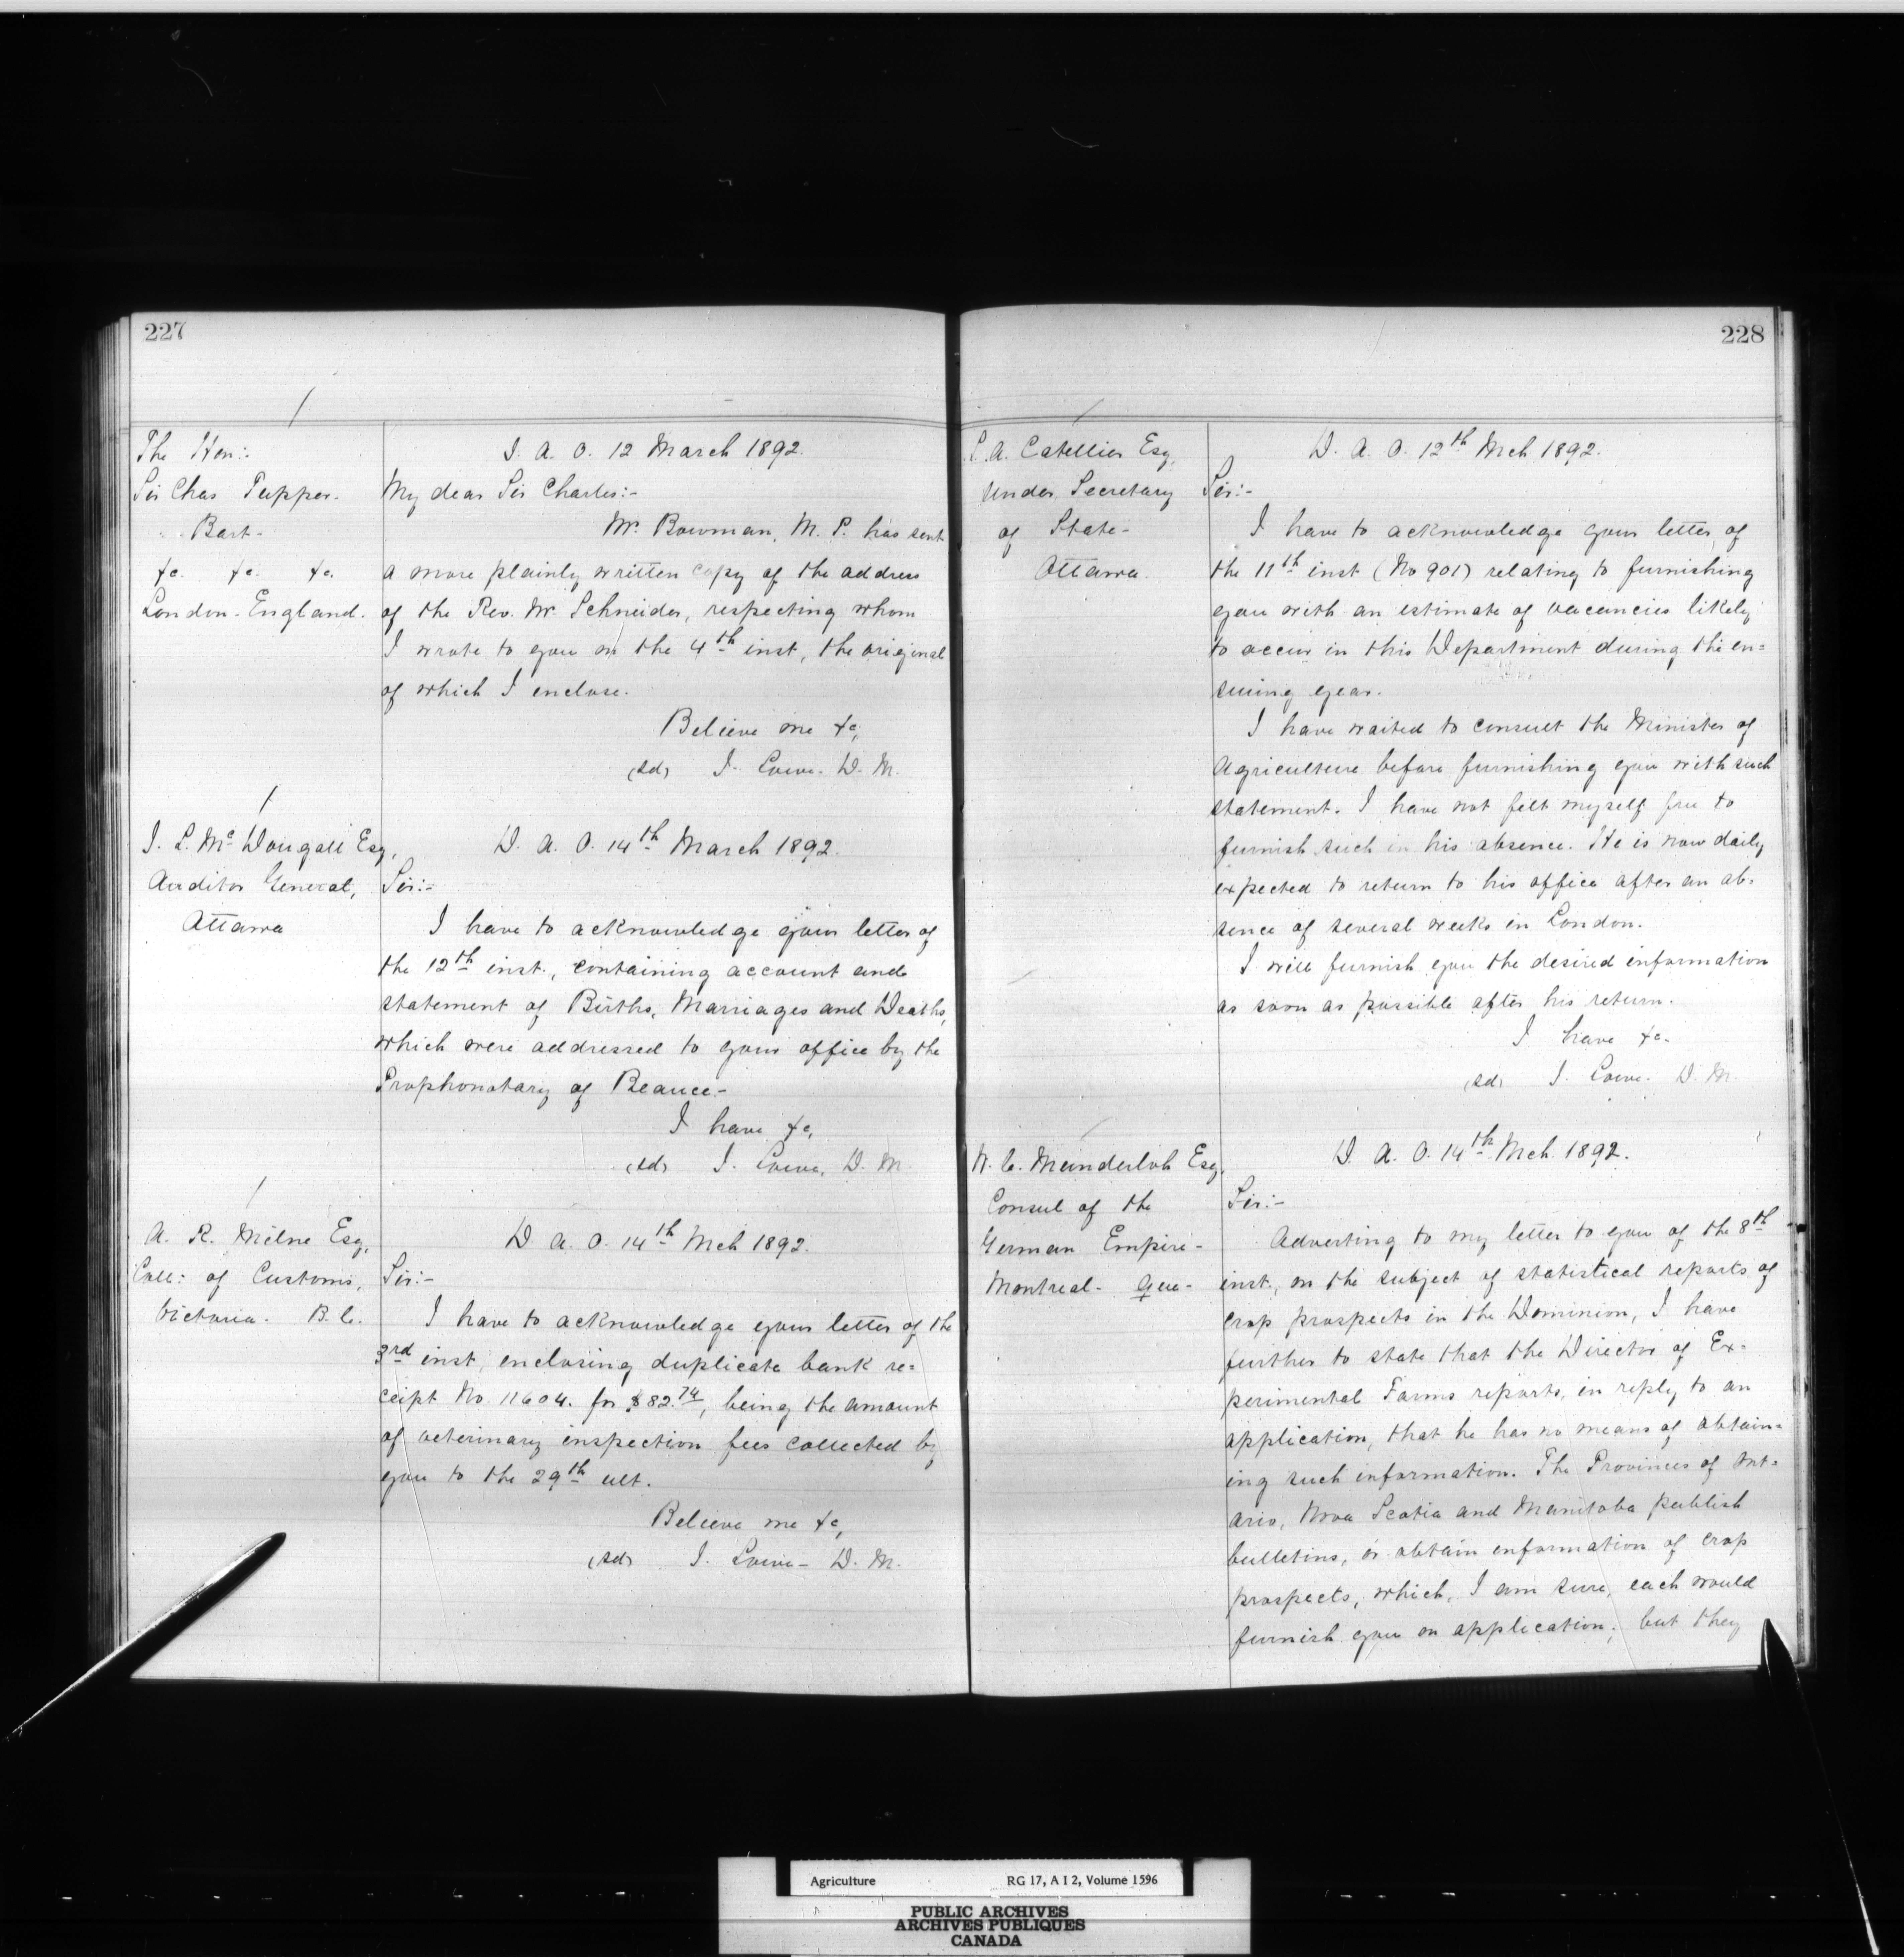 227
The Hon:-
Sir Chas Tupper-
Bart-
&c. &c. &c.
London-England.
D. A. O. 12 March 1892.
My dear Sir Charles:-
Mr. Bowman, M. P. has sent
a more plainly written copy of the address
of the Rev. Mr. Schneider, respecting whom
I wrote to you on the 4th inst, the original
of which I enclose.
Believe me &c,
(sd) J. Lowe. D. M.
J. L. McDougall Esq,
Auditor General,
Ottawa
D. A. O. 14th March 1892.
Sir:-
I have to acknowledge your letter of
the 12th inst., containing account and
statement of Births, Marriages and Deaths,
which were addressed to your office by the
Prophonotary of Beauce-
I have &c,
(sd) J. Lowe, D. M.
A. R. Milne Esq,
Coll: of Customs,
Victoria. B. C.
D. A. O. 14th Mch 1892.
Sir:-
I have to acknowledge your letter of the
3rd inst, enclosing duplicate bank re=
ceipt No. 11604. for $82.74, being the amount
of veterinary inspection fees collected by
you to the 29th ult.
Believe me &c,
(sd) J. Lowe- D. M.
228
L. A. Catellier Esq,
Under Secretary
of State-
Ottawa.
D. A. O. 12th Mch 1892.
Sir:-
I have to acknowledge your letter of
the 11th inst (No 901) relating to furnishing
you with an estimate of vacancies likely
to occur in this Department during the en=
suing year.
I have waited to consult the Minister of
Agriculture before furnishing you with such
statement. I have not felt myself free to
furnish such in his absence. He is now daily
expected to return to his office after an ab-
sence of several weeks in London.
I will furnish you the desired information
as soon as possible after his return.
I have &c.
(sd) J. Lowe. D. M.
W. C. Munderloh Esq,
Consul of the
German Empire-
Montreal- Que-
D. A. O. 14th Mch 1892.
Sir:-
Adverting to my letter to you of the 8th
inst., on the subject of statistical reports of
crop prospects in the Dominion, I have
further to state that the Director of Ex-
perimental Farms reports, in reply to an
application, that he has no means of obtain=
ing such information. The Provinces of Ont=
ario, Nova Scotia and Manitoba publish
bulletins, or obtain information of crop
prospects, which, I am sure, each would
furnish you on application; but they
Agriculture RG 17, A I 2, Volume 1596
PUBLIC ARCHIVES
ARCHIVES PUBLIQUES
CANADA